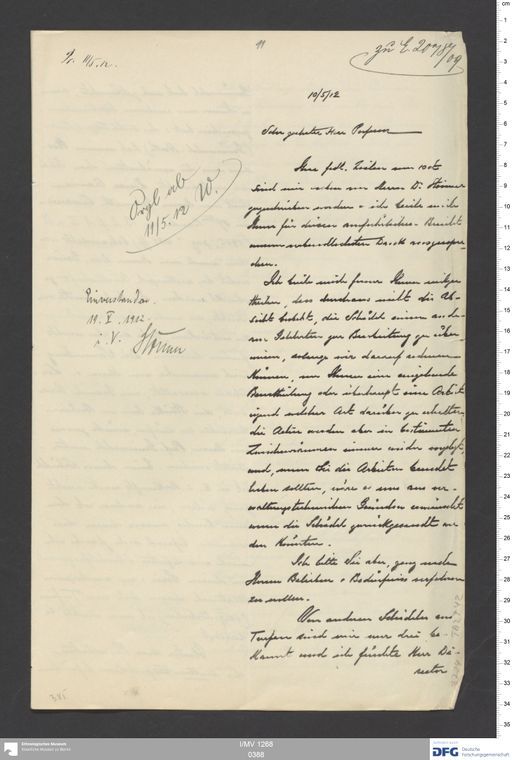 11
zu E. 20  /87/09
11/5.12.
10/5/12
Sehr geehrter Herr Professor
Ihre  Zeilen vom 10ten
sind mir  von Herrn Dr. Stönner
 worden &  mich
Ihnen für diesen ausführlichen Bericht
 verbindlichsten Dank auszuspre-
chen.
Ich  mich ferner Ihnen mitzu-
theilen, dass durchaus nicht die Ab-
sicht besteht, die Schädel einem ande-
ren Gelehrten zur Bearbeitung zu über-
 solange wir darauf rechnen
können, von Ihnen eine eingehende
Beurtheilung oder überhaupt eine Arbeit
irgend welcher Art darüber zu erhalten,
die Acten werden aber in bestimmten
Zwischenräumen immer wieder vorgelegt,
und, wenn Sie die Arbeiten beendet
haben sollten, wäre es uns aus ver-
waltungstechnischen Gründen erwünscht
wenn die Schädel zurückgesandt wer-
den könnten.
Ich bitte Sie aber, ganz nach
Ihrem Belieben & Bedürfniss verfahren
zu wollen.
Von anderen Schädeln aus
Turfan sind mir nur drei be-
kannt und ich fürchte Herr Di-
rector
Orgl ab
11/5.12 W.
Einverstanden
11. V. 1912
i. V. Stönner
I/MV 1268
0388
Ethnologisches Museum
Staatliche Museen zu Berlin
DFG Deutsche
Forschungsgemeinschaft